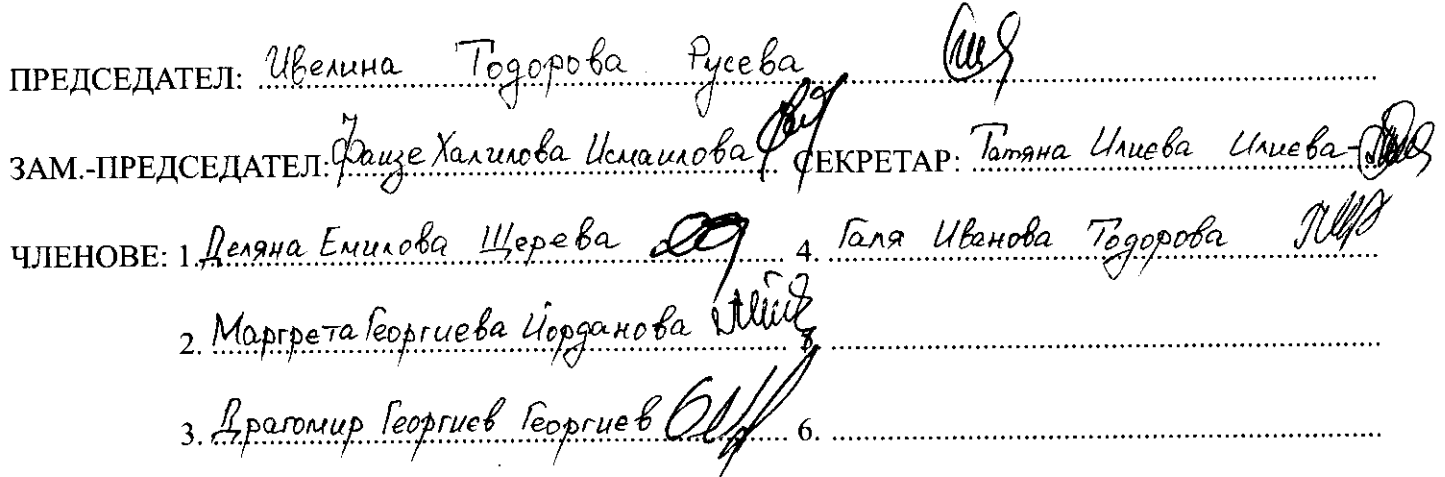 ПРЕДСЕДАТЕЛ: Ивелина Тодорова Русева
ЗАМ.-ПРЕДСЕДАТЕЛ: Фаизе Халилова Исмаилова СЕКРЕТАР: Татяна Илиева Илиева-
ЧЛЕНОВЕ: 1. Деляна Емилова Щерева 4. Галя Иванова Тодорова
2. Маргрета Георгиева Йорданова
3. Драгомир Георгиев Георгиев 6.